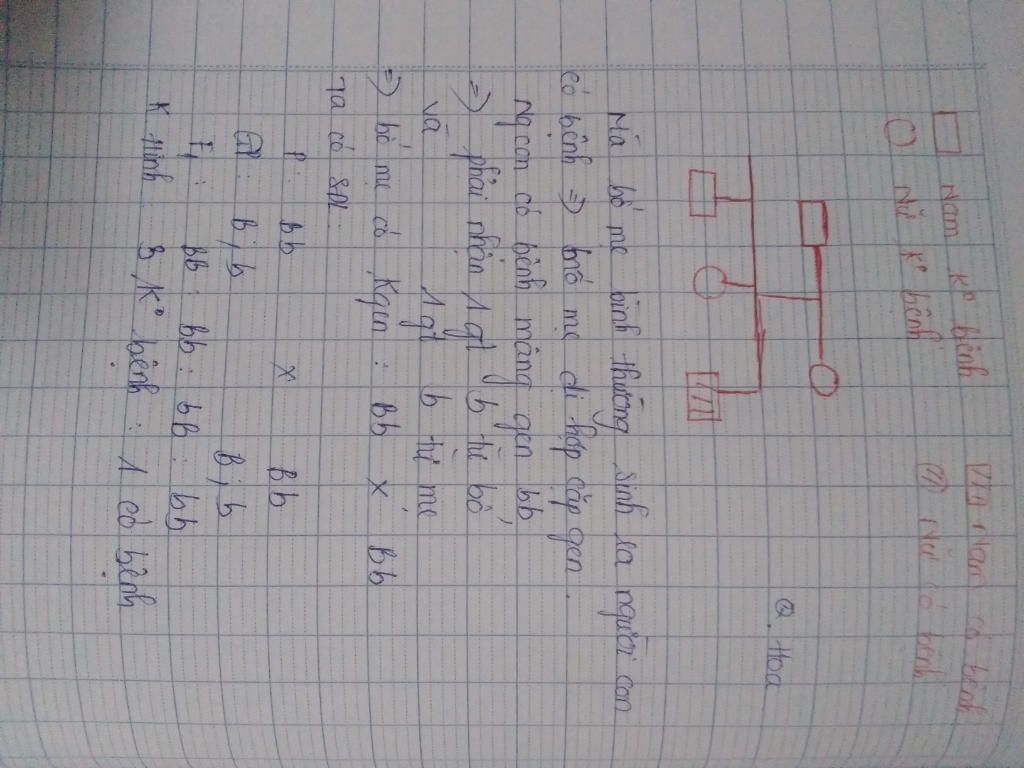 Nam k° bệnh Nam có bệnh
Nữ k° bệnh Nữ có bệnh
Q. Hoa
Mà bố mẹ bình thường sinh ra người con
có bệnh => bố mẹ dị hợp cặp gen.
Ng con có bệnh mang gen bb
=> phải nhận 1 gt b từ bố
và 1 gt b từ mẹ
=> bố mẹ có Kgen: Bb x Bb
Ta có SĐL:
P: Bb x Bb
GP: B; b B; b
F1: BB: Bb: Bb: bb
K hình 3 k° bệnh : 1 có bệnh